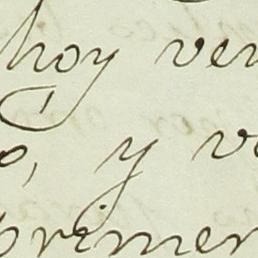 hoy ver
o, y ve
primer